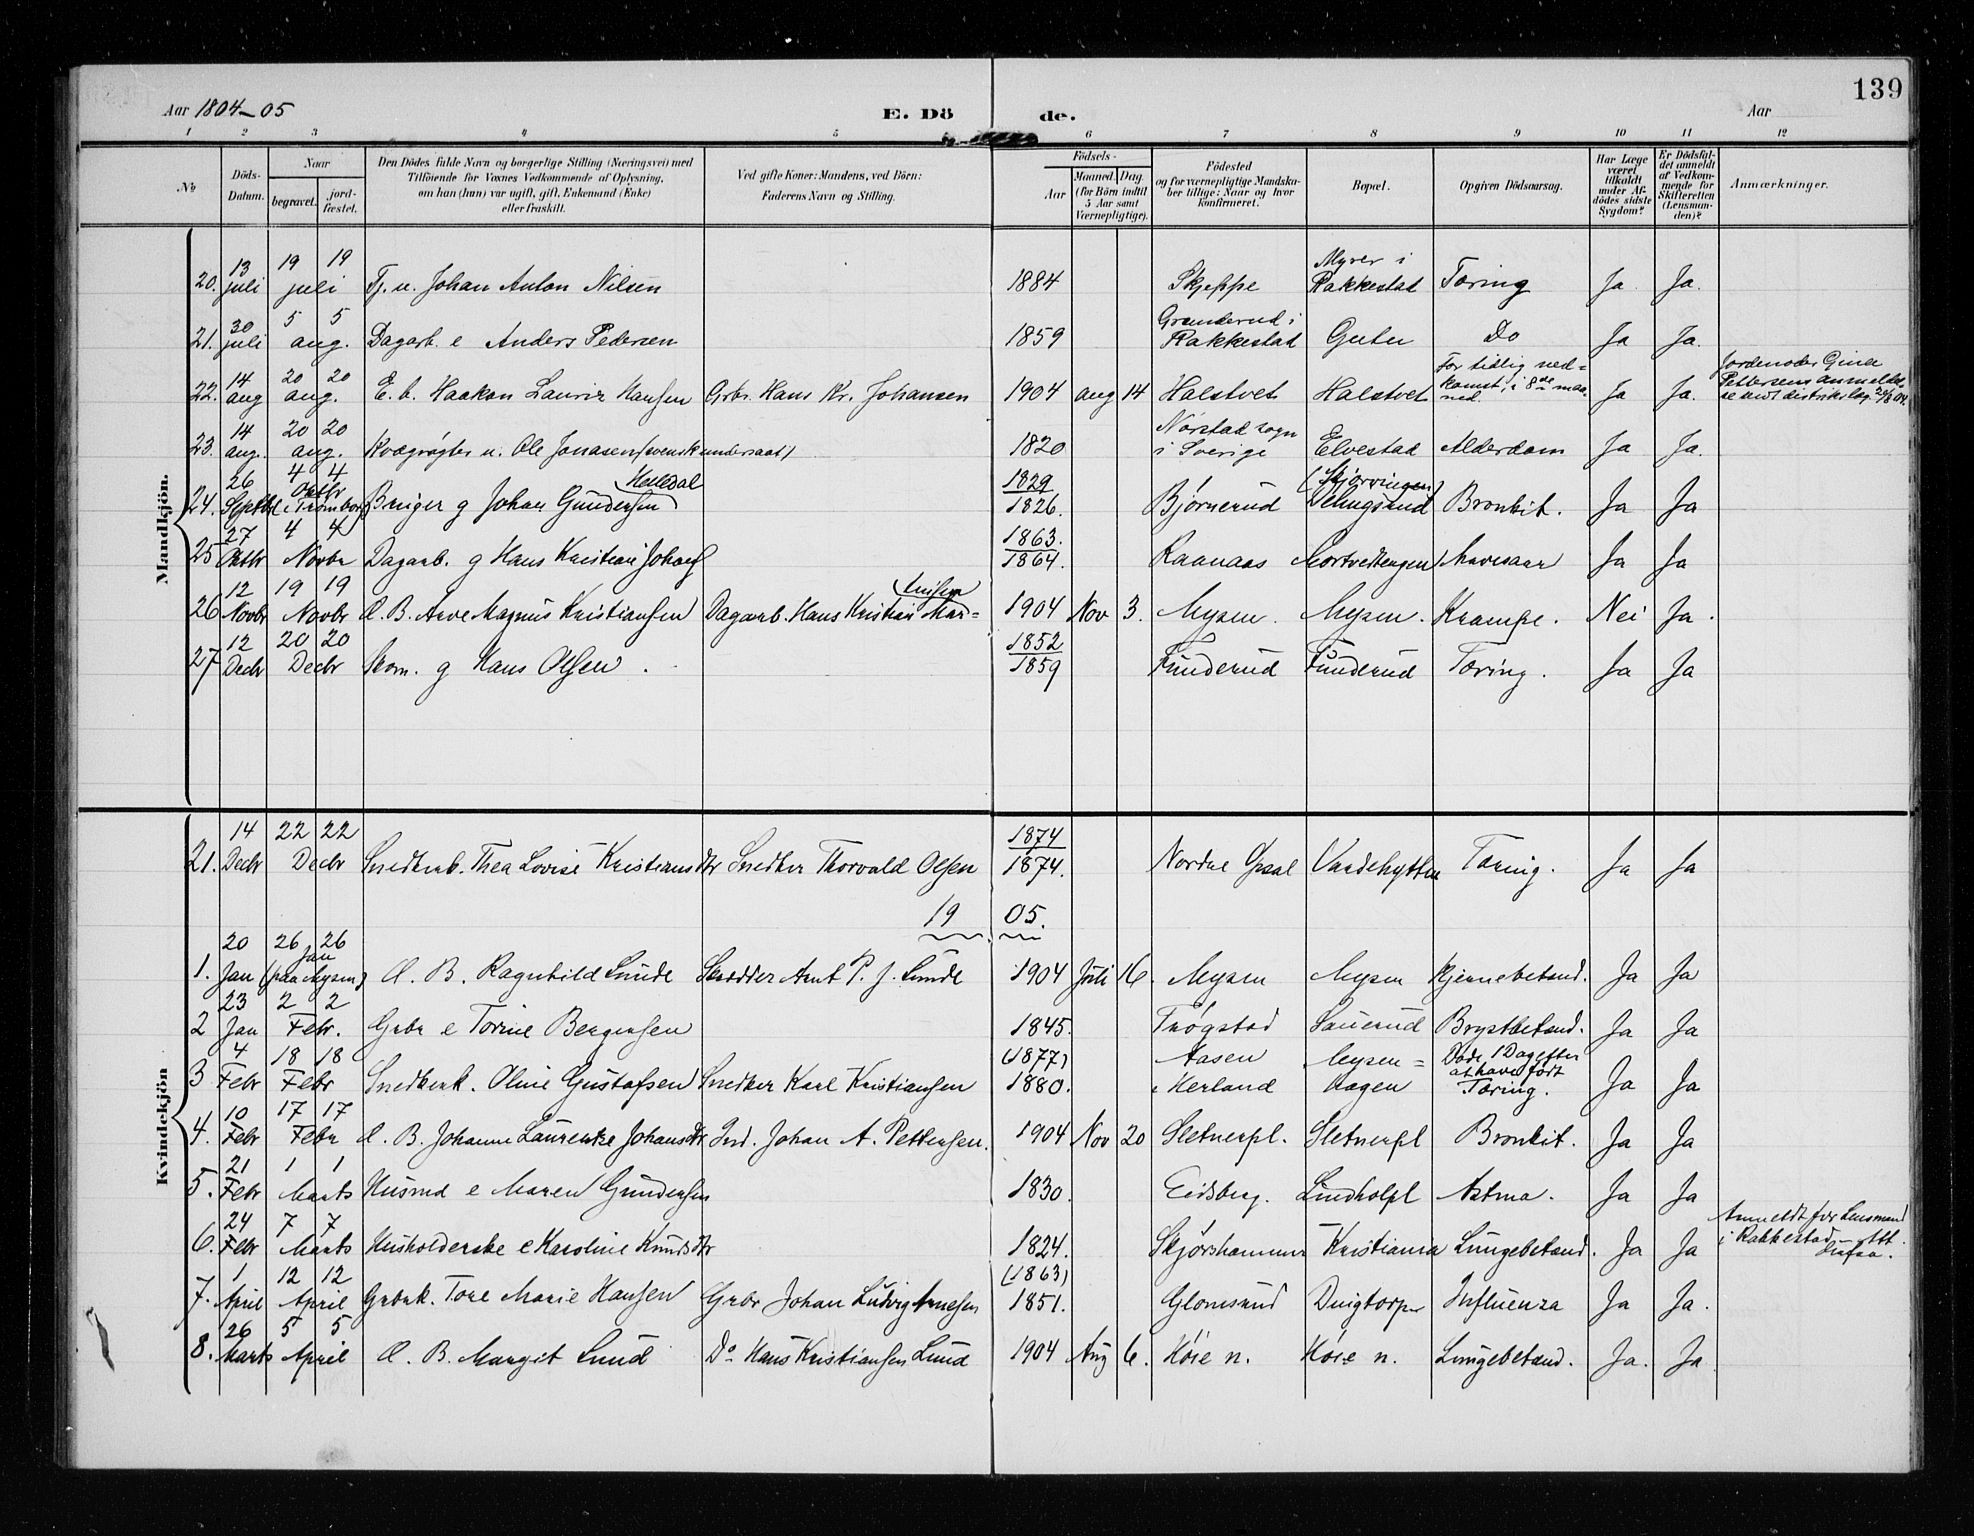 139
Aar 1804-05 E. Dö de. Aar
1 2 3 4 5 6 7 8 9 10 11 12
No
Döds-Datum.
Naar
begravet.
jord-fæstet.
Den Dödes fulde Navn og borgerlige Stilling (Næringsvei) med
Tilföiende for Voxnes Vedkommende af Oplysning,
om han (hun) var ugift, gift, Enkemand (Enke)
eller fraskilt.
Ved gifte Koner: Mandens, ved Börn:
Faderens Navn og Stilling.
Födsels-
Aar
Maaned. Dag.
(for Börn indtil
5 Aar samt
Værnepligtige).
Födested
og for værnepligtige Mandska-
ber tillige: Naar og hvor
konfirmeret.
Bopæl.
Opgiven Dödsaarsag.
Har Læge
været
tilkaldt
under Af-
dödes sidste
Sygdom?
Er Dödsfal-
det anmeldt
af Vedkom-
mende for
Skifteretten
(Lensman-
den)?
Anmærkninger.
Mandkjön.
20. 13 juli 19 19 juli Tj. u. Johan Anton Nilsen 1884 Skjeppe Myrer i Rakkestad Tæring Ja Ja.
21. 30 juli 5 5 aug. Dagarb. e Anders Pedersen 1859 Grunderud i Rakkestad Guter Do Ja Ja.
22. 14 aug 20 20 aug. E. b. Haakon Lauriz Hansen Grbr. Hans Kr. Johansen 1904 aug 14 Halstvet Halstvet For tidlig ned-komst, i 8de maa-ned. Ja Ja. Jordemoder Gina Pettersens anmeldel-se
23. 14 aug. 20 20 aug. Kvægrøgter u. Ole Jonasen (svensk undersaat) 1820 Norstad sogn i Sverige Elvestad Alderdom Ja Ja.
24. 26 Septbr 4 4 Oktbr (i Trømborg) Bruger g Johan Gundersen 1829 1826. Bjørnerud (Skjørvingen) Bronkit. Ja Ja
25 27 Oktbr 4 4 Novbr Dagarb. g Hans Kristian Johans 1863. 1864. Raanaas Mortvedtengen Mavesaar Ja Ja
26 12 Novbr 19 19 Novbr Æ. B. Arve Magnus Kristiansen Dagarb. Hans Kristian 1904 Nov 3. Mysen. Mysen. Krampe. Nei Ja.
27 12 Decbr 20 20 Decbr Skom. g Hans Olsen. 1852 1859 Funderud Funderud Tæring. Ja Ja
Kvindekjön
21. 14 Decbr 22 22 Decbr Snedkerk. Thea Lovise Kristiansdtr Snedker Thorvald Olsen 1874 1874. Nordre Opsal Vardehytten Tæring. Ja Ja
19 05.
1. 20 Jan 26 26 Jan (paa Mysen) Æ. B. Ragnhild Lunde Skrædder Arnt P. J. Lunde 1904 Juli 16. Mysen Mysen Hjernebetænd. Ja Ja
2 23 Jan 2 2 Febr. Grbr e Torine Bergersen 1845. Trøgstad Sauerud Brystbetænd. Ja Ja
3 4 Febr 18 18 Febr Snedkerk. Oline Gustafsen Snedker Karl Kristiansen (1877) 1880. Aasen i Herland Mysen= Hagen Døde 1 Dag efter at have født Tæring. Ja Ja
4. 10 Febr 17 17 Febr Æ. B. Johanne Laurentze Johansdtr Ind. Johan A. Pettersen. 1904 Nov 20 Sletnerpl. Sletnerpl Bronkit. Ja Ja
5. 21 Febr 1 1 Marts Husmd e Maren Gundersen 1830. Eidsberg. Lindholpl Astma. Ja Ja
6. 24 Febr 7 7 Marts Husholderske e Karoline Knudsdtr 1824. Skjørshammer Kristiania Lungebetænd. Ja Ja Anmeldt for Lensmand i Rakkestad
7. 1 April 12 12 April Grbrk. Tone Marie Hansen Grbr Johan Ludvig Arnesen (1863) 1851. Glomsrud Dingtorp Influenza Ja Ja.
8. 26 Marts 5 5 April Æ. B. Margit Lund Do Hans Kristiansen Lund 1904 Aug 6. Høie n. Høie n. Lungebetænd. Ja. Ja